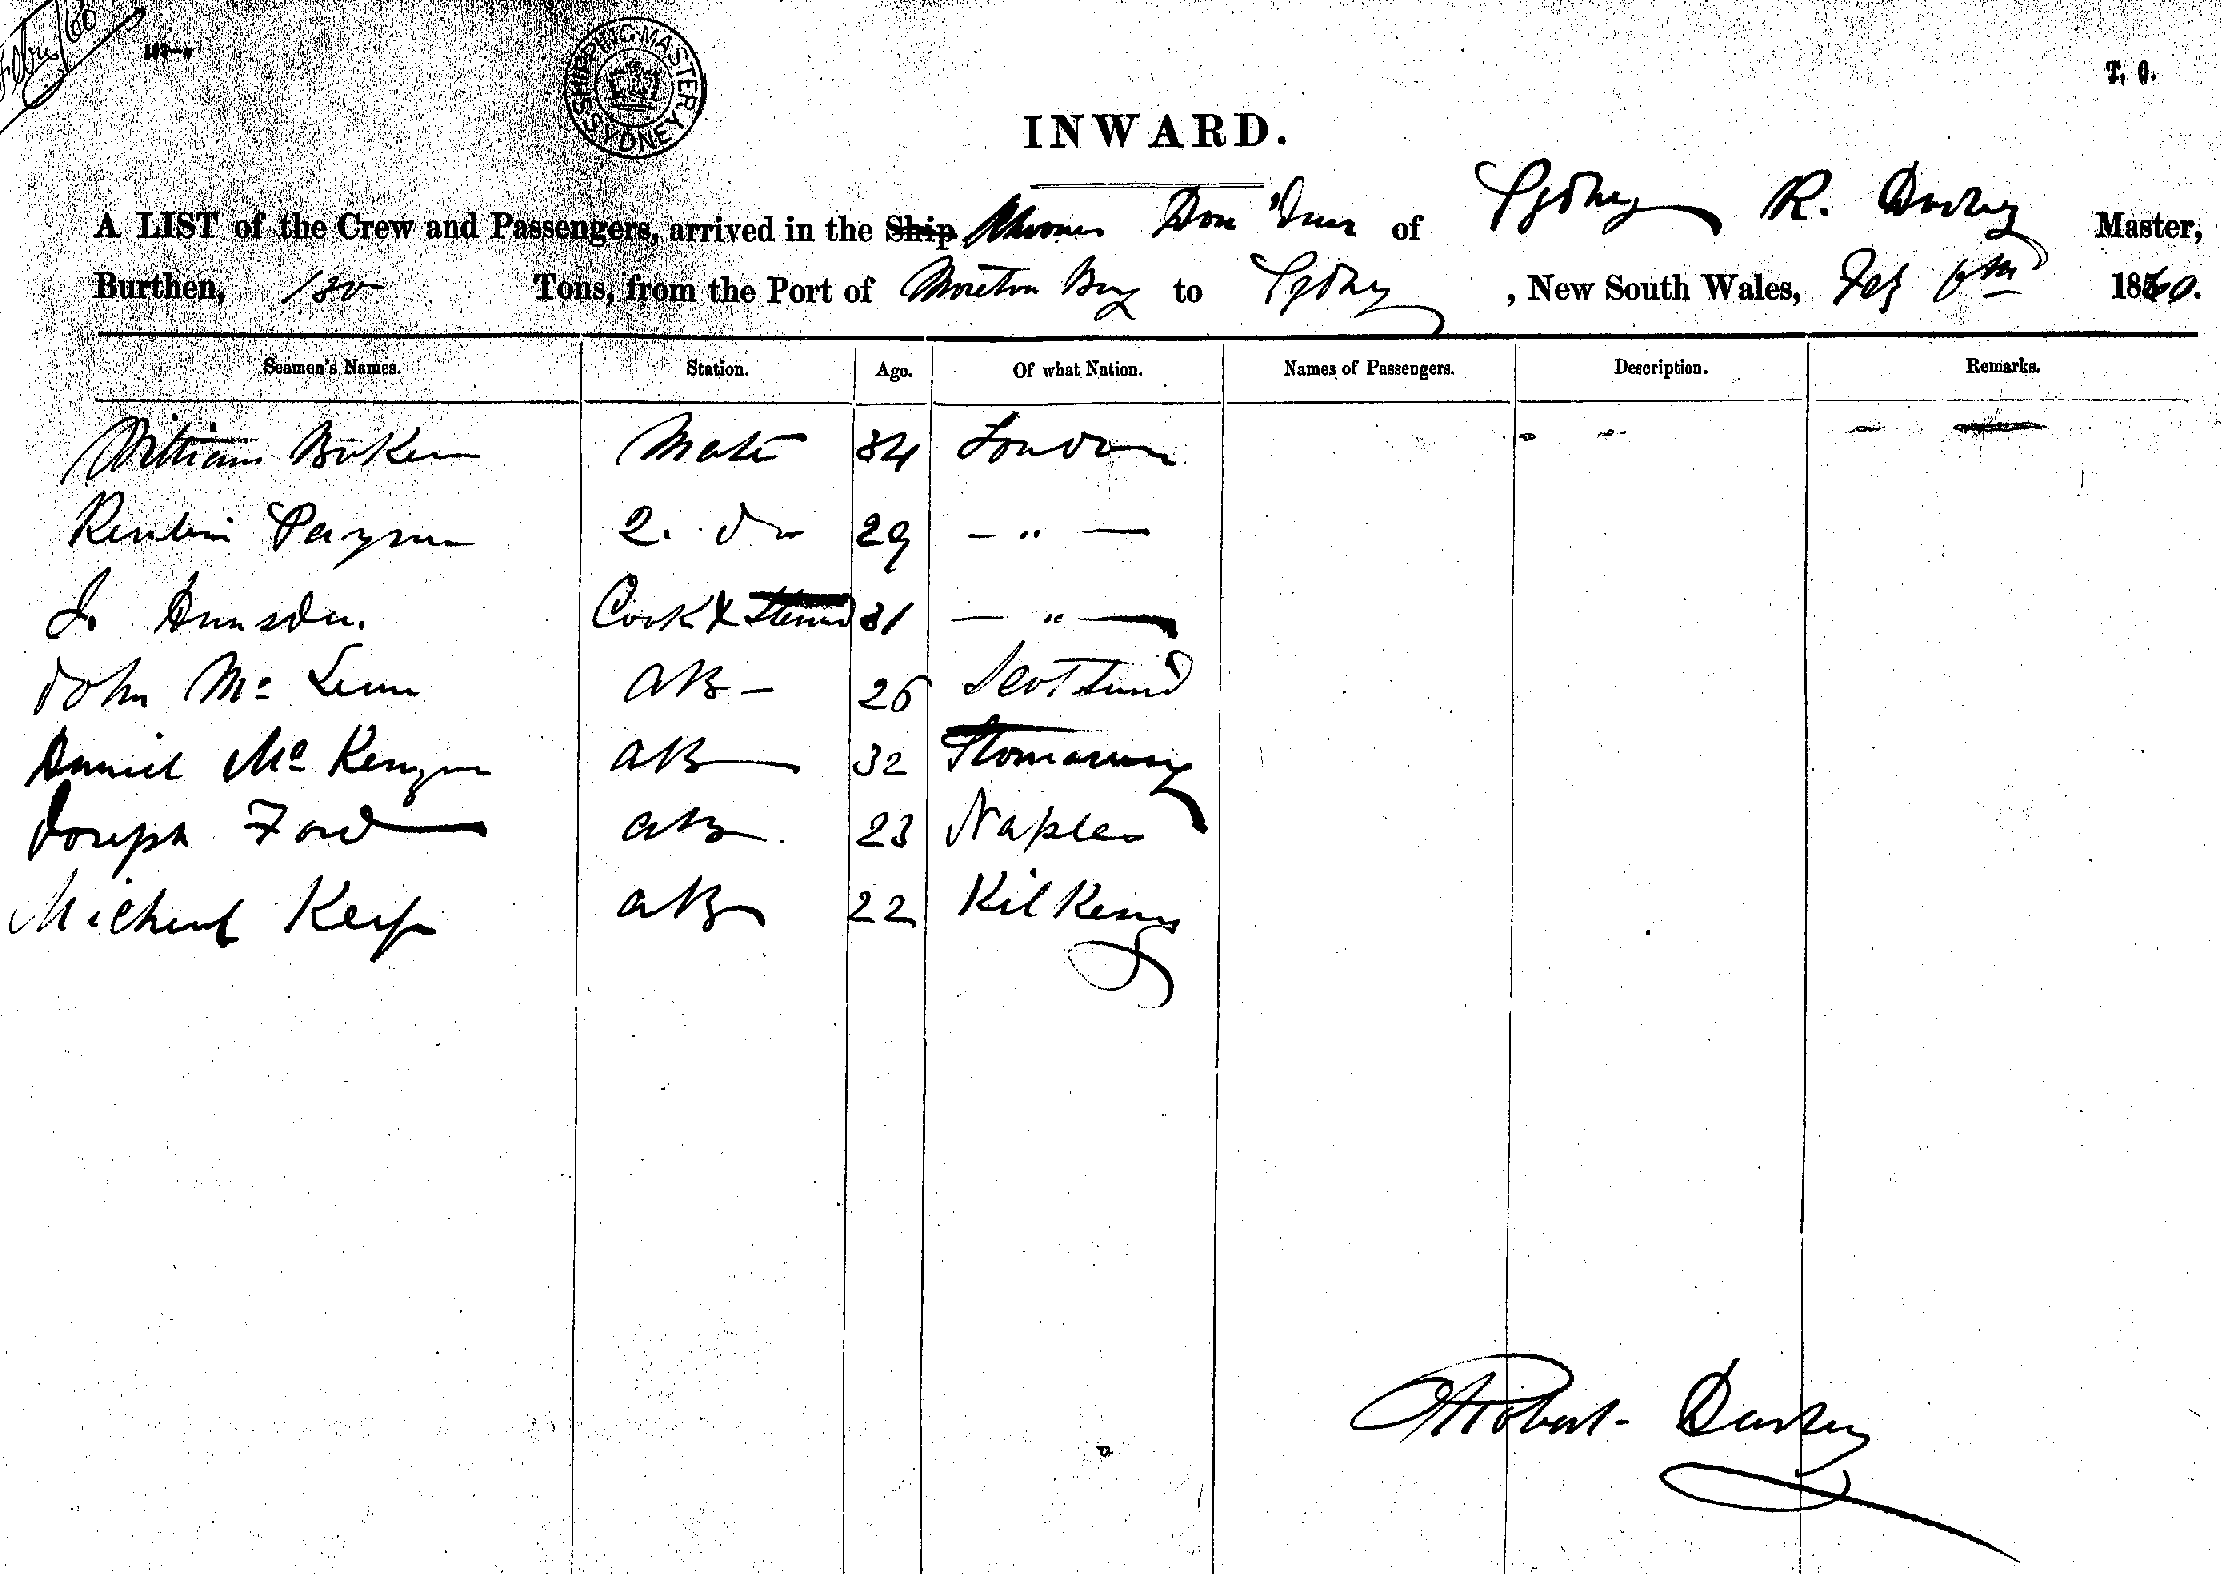 SHIPPING MASTER SYDNEY
T. O.
INWARD.
A LIST of the Crew and Passengers, arrived in the Ship Don Juan of Sydney R. Darley Master,
Burthen, 130 Tons, from the Port of Moreton Bay to Sydney, New South Wales, Feb 1860.
Seamen's Names. Station. Age. Of what Nation. Names of Passengers. Description. Remarks.
William Baker Mate 34 London
Reuben Payne 2. do 29 — " —
J. Dunsdon. Cook & Steward 31 — " —
John Mc Lean AB — 26 Scotland
Daniel Mc Kenzie AB 32 Stornaway
Joseph Ford AB. 23 Naples
Michael AB 22 Kilkenny
Robert Darley